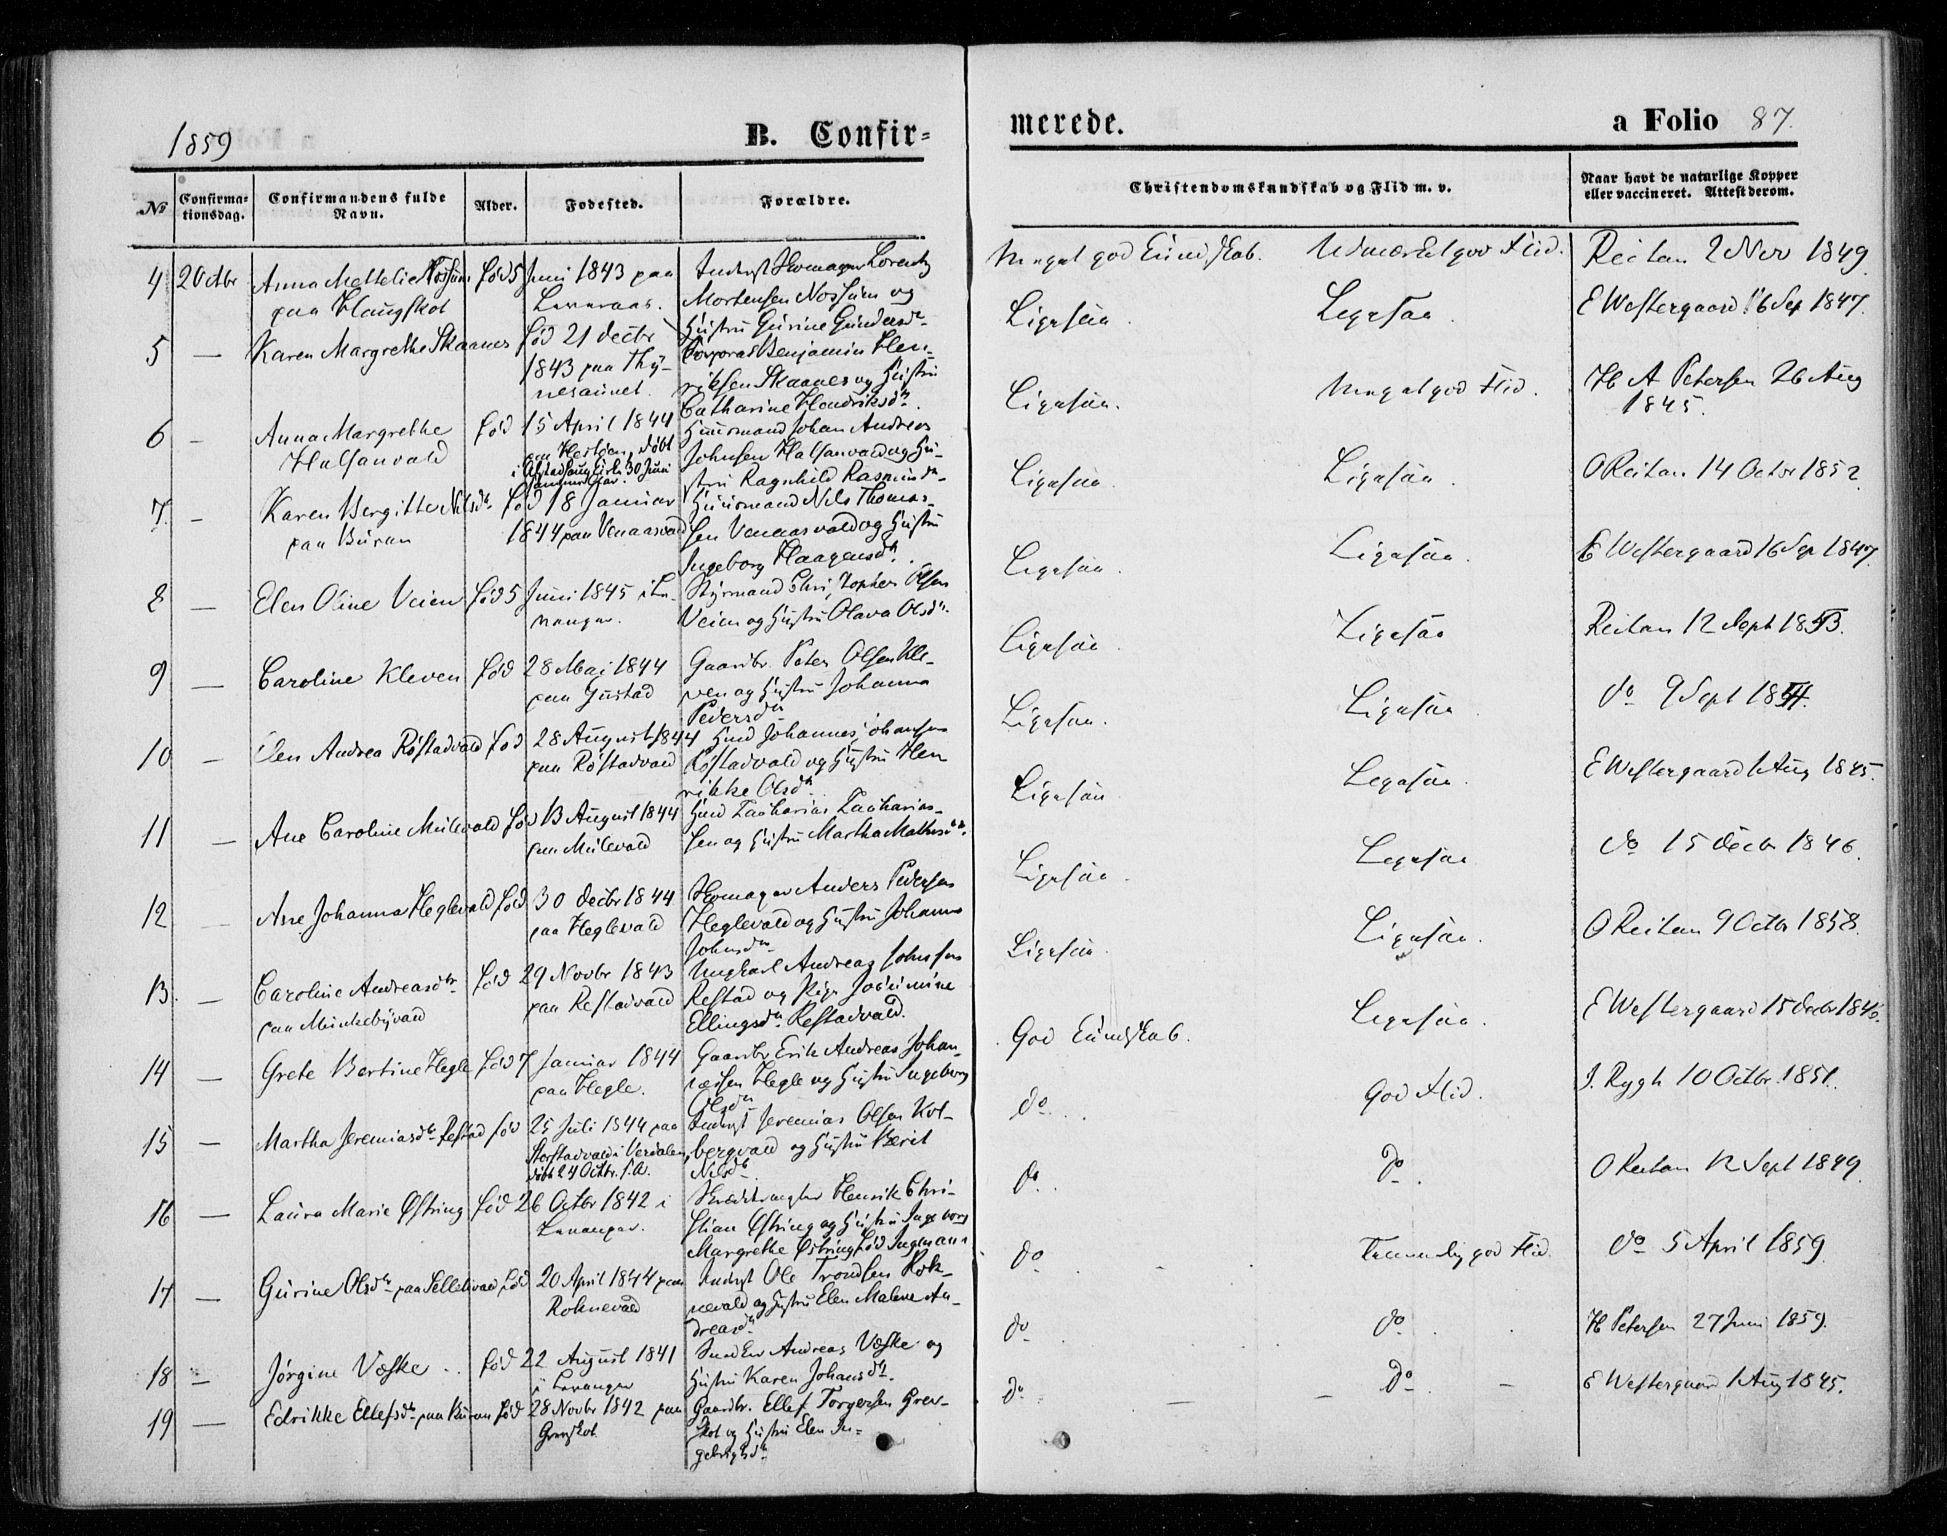 1859
B. Confir-
merede.
a Folio 87.
No
Confirma-
tionsdag.
Confirmandens fulde
Navn.
Alder.
Fodested.
Forældre.
Christendomskundskab og Flid m. v.
Naar havt de naturlige Kopper
eller vaccineret. Attest derom.
4 2 Octbr Anna Methelie Nossum
paa Haugskot
fød 5 Juni 1843 paa
Inderst Skomager Lorents
Mortensen Nossum og
Hustru Gurine Gundersdr
Meget god Kundskab. Udmærket god Flid.
Reitan 2 Nov 1849
5 — Karen Margrethe Skaanes
fød 21 Decbr
1843 paa
Corporal Benjamin Hen-
riksen Skaanes og Hustru
Catharine Hendriksdr.
Ligesaa. Ligesaa.
E Westergaard 16 Sep 1847.
6 — Anna Margrethe
Halsanvald
fød 15 April 1844
døbt
30 Juni
samme Aar.
Huusmand Johan Andreas
Johnsen Halsanvald og Hu-
stru Ragnhild Rasmusdr
Ligesaa. Meget god Flid.
H A Petersen 26 Aug
1845.
7. — Karen Bergitte Nilsdr
paa Buran
fød 18 Januar
1844 paa Venaasvald
Huusmand Nils Thomas-
sen Venaasvald og Hustru
Ingeborg Haagensdr.
Ligesaa. Ligesaa.
O Reitan 14 Octbr 1852
8 — Elen Oline Veien
fød 5 Juni 1845 i Le-
vanger.
Styrmand Christopher Olsen
Veien og Hustru Olava Olsdr.
Ligesaa. Ligesaa.
E Westergaard 16 Sep 1847.
9 — Caroline Kleven
fød 28 Mai 1844
paa Gustad
Gaardbr. Peter Olsen Kle-
ven og Hustru Johanna
Pedersdr
Ligesaa. Ligesaa
Reitan 12 Sept 1853.
10 — Elen Andrea Røstadvald
fød 28 August 1844
paa Røstadvald
Hmd Johannes Johansen
Røstadvald og Hustru Hen
rikke Olsdr.
Ligesaa. Ligesaa
do 9 Sept 1854.
11 — Ane Caroline Mulevald
fød 13 August 1844
paa Mulevald
Hmd Zacharias Zacharias-
sen og Hustru Martha Mathisdr.
Ligesaa Ligesaa.
E Westergaard 1 Aug 1845.
12 — Ane Johanna Heglevald
fød 30 Decbr 1844
paa Heglevald
Skomager Anders Pedersen
Heglevald og Hustru Johanna
Johnsdr
Ligesaa. Ligesaa
do 15 Decbr 1846.
13. — Caroline Andreasdr
paa Munkebyvald
fød 29 Novbr 1843
paa Restadvald
Ungkarl Andreas Johnsen
Restad og Pige
Ellingsdr. Restadvald.
Ligesaa. Ligesaa.
O Reitan 9 Octbr 1858.
14 — Grete Bertine Hegle
fød 7 Januar 1844
paa Hegle.
Gaardbr Erik Andreas Johan-
nessen Hegle og Hustru Ingeborg
Olsdr
God Kundskab. Ligesaa.
E Westergaard 15 Decbr 1846.
15 — Martha Jeremiasdr Restad
fød 25 Juli 1844 paa
i Verdalen,
døbt 24 Octbr. s. A.
Inderst Jeremias Olsen Kol-
bergvald og Hustru Berit
Nilsdr
do. God Flid.
I. Rygh 10 Octbr. 1851.
16 — Laura Marie Østring
fød 26 Octbr 1842 i
Levanger.
Henrik Chri-
stian Østring og Hustru Ingeborg
Margrethe Østring fød Ingmann
do. do.
O Reitan 12 Sept 1849
17 — Gurine Olsdr
fød 20 April 1844 paa
Roknevald
Inderst Ole Trondsen Rok-
nevald og Hustru Elen Malene An-
dreasdr
do. Temmelig god Flid.
do 5 April 1859
18 — Jørgine Væske
fød 22 August 1841
i Levanger
Andreas Væske og
Hustru Karen Johansdr.
do. do.
H Petersen 27 Juni 1859.
19 — Edrikke Ellefsdr paa Buran
fød 28 Novbr 1842 paa
Grevskot
Gaardbr. Ellef Torgersen Grev-
skot og Hustru Elen In-
gebrigtsdr
do — do —
E Westergaard 1 Aug 1845.